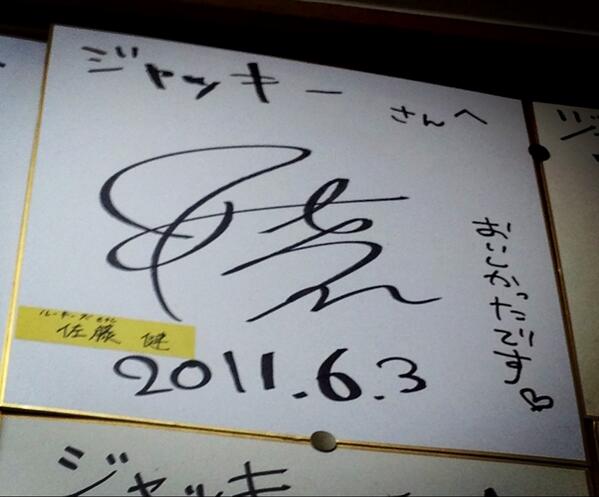 ジャッキー
さんへ
おいしかったです♡
佐藤 健
2011.6.3
ジャッキ